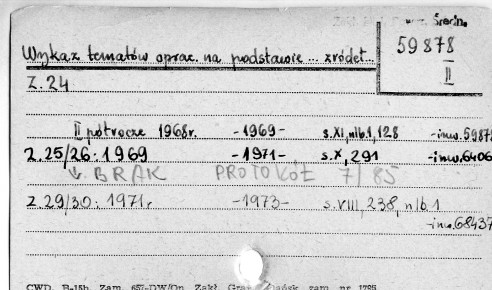 Średn.
59878
II
Wykaz tematów oprac. na podstawie ... źródeł...
Z.24
II półrocze 1968r. -1969- s.XI,nlb.1,128 -inw.5987
Z.25/26:1969 -1971- s.X,291 -inw.6406
↓ BRAK PROTOKÓŁ 7/85
Z 29/30:1971r. -1973- s.VIII,238,nlb1
-inw.68437
CWD. B-15h Zam. 657-DW/On. Zakł. Graf. zam. nr 1795